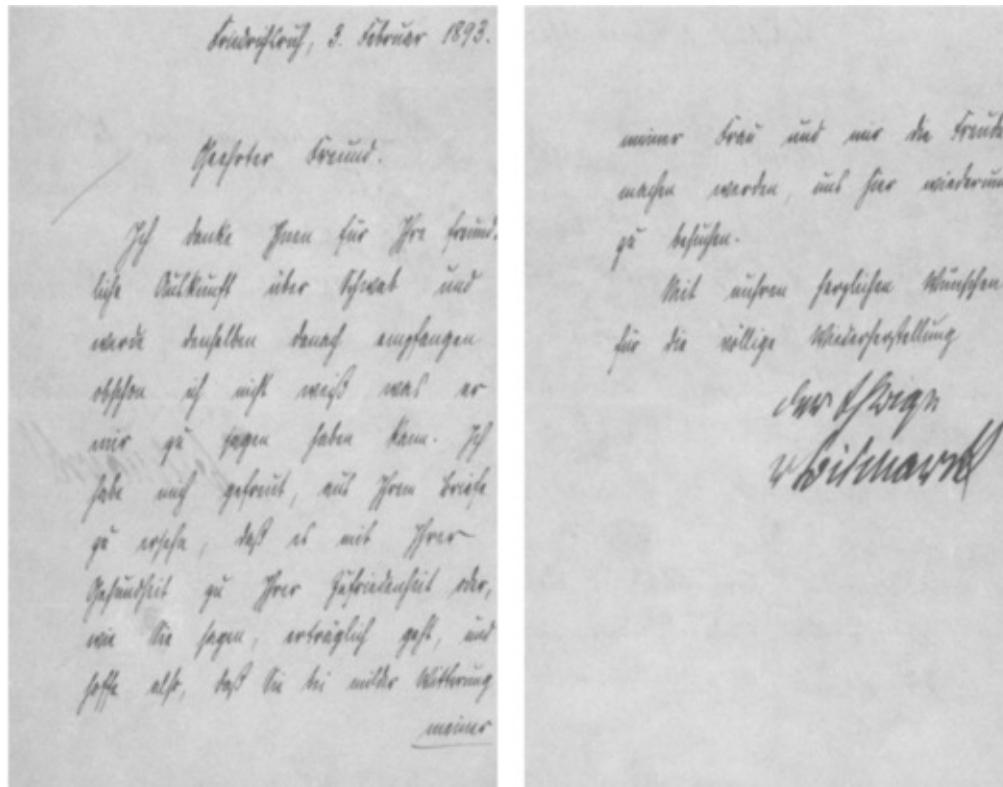 Friedrichsruh, 3. Februar 1893.
Geehrter Freund.
Ich danke Ihnen für Ihre freund-
liche Auskunft über Schwab und
werde denselben danach empfangen
obschon ich nicht weiß was er
mir zu sagen haben kann. Ich
habe mich gefreut, aus Ihrem Briefe
zu ersehn, daß es mit Ihrer
Gesundheit zu Ihrer Zufriedenheit oder,
wie Sie sagen, erträglich geht, und
hoffe also, daß Sie bei milder Witterung
meiner
meiner Frau und mir die Freude
machen werden, uns hier wiederum
zu besuchen.
Mit unsren herzlichen Wünschen
für die völlige Wiederherstellung
der Ihrige
v Bismarck